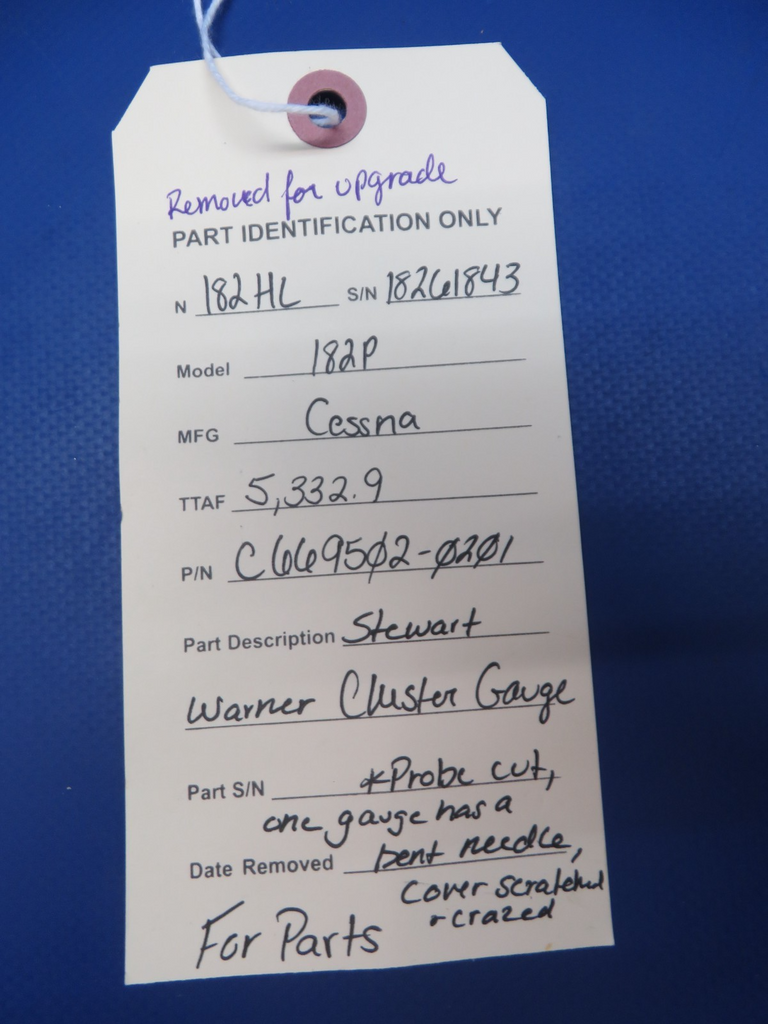 Removed for upgrade
PART IDENTIFICATION ONLY
N 182HL S/N 18261843
Model 182P
MFG Cessna
TTAF 5,332.9
P/N C669502-0201
Part Description Stewart
Warner Cluster Gauge
Part S/N *Probe cut,
one gauge has a
Date Removed bent needle,
cover scratched
+ crazed
For Parts